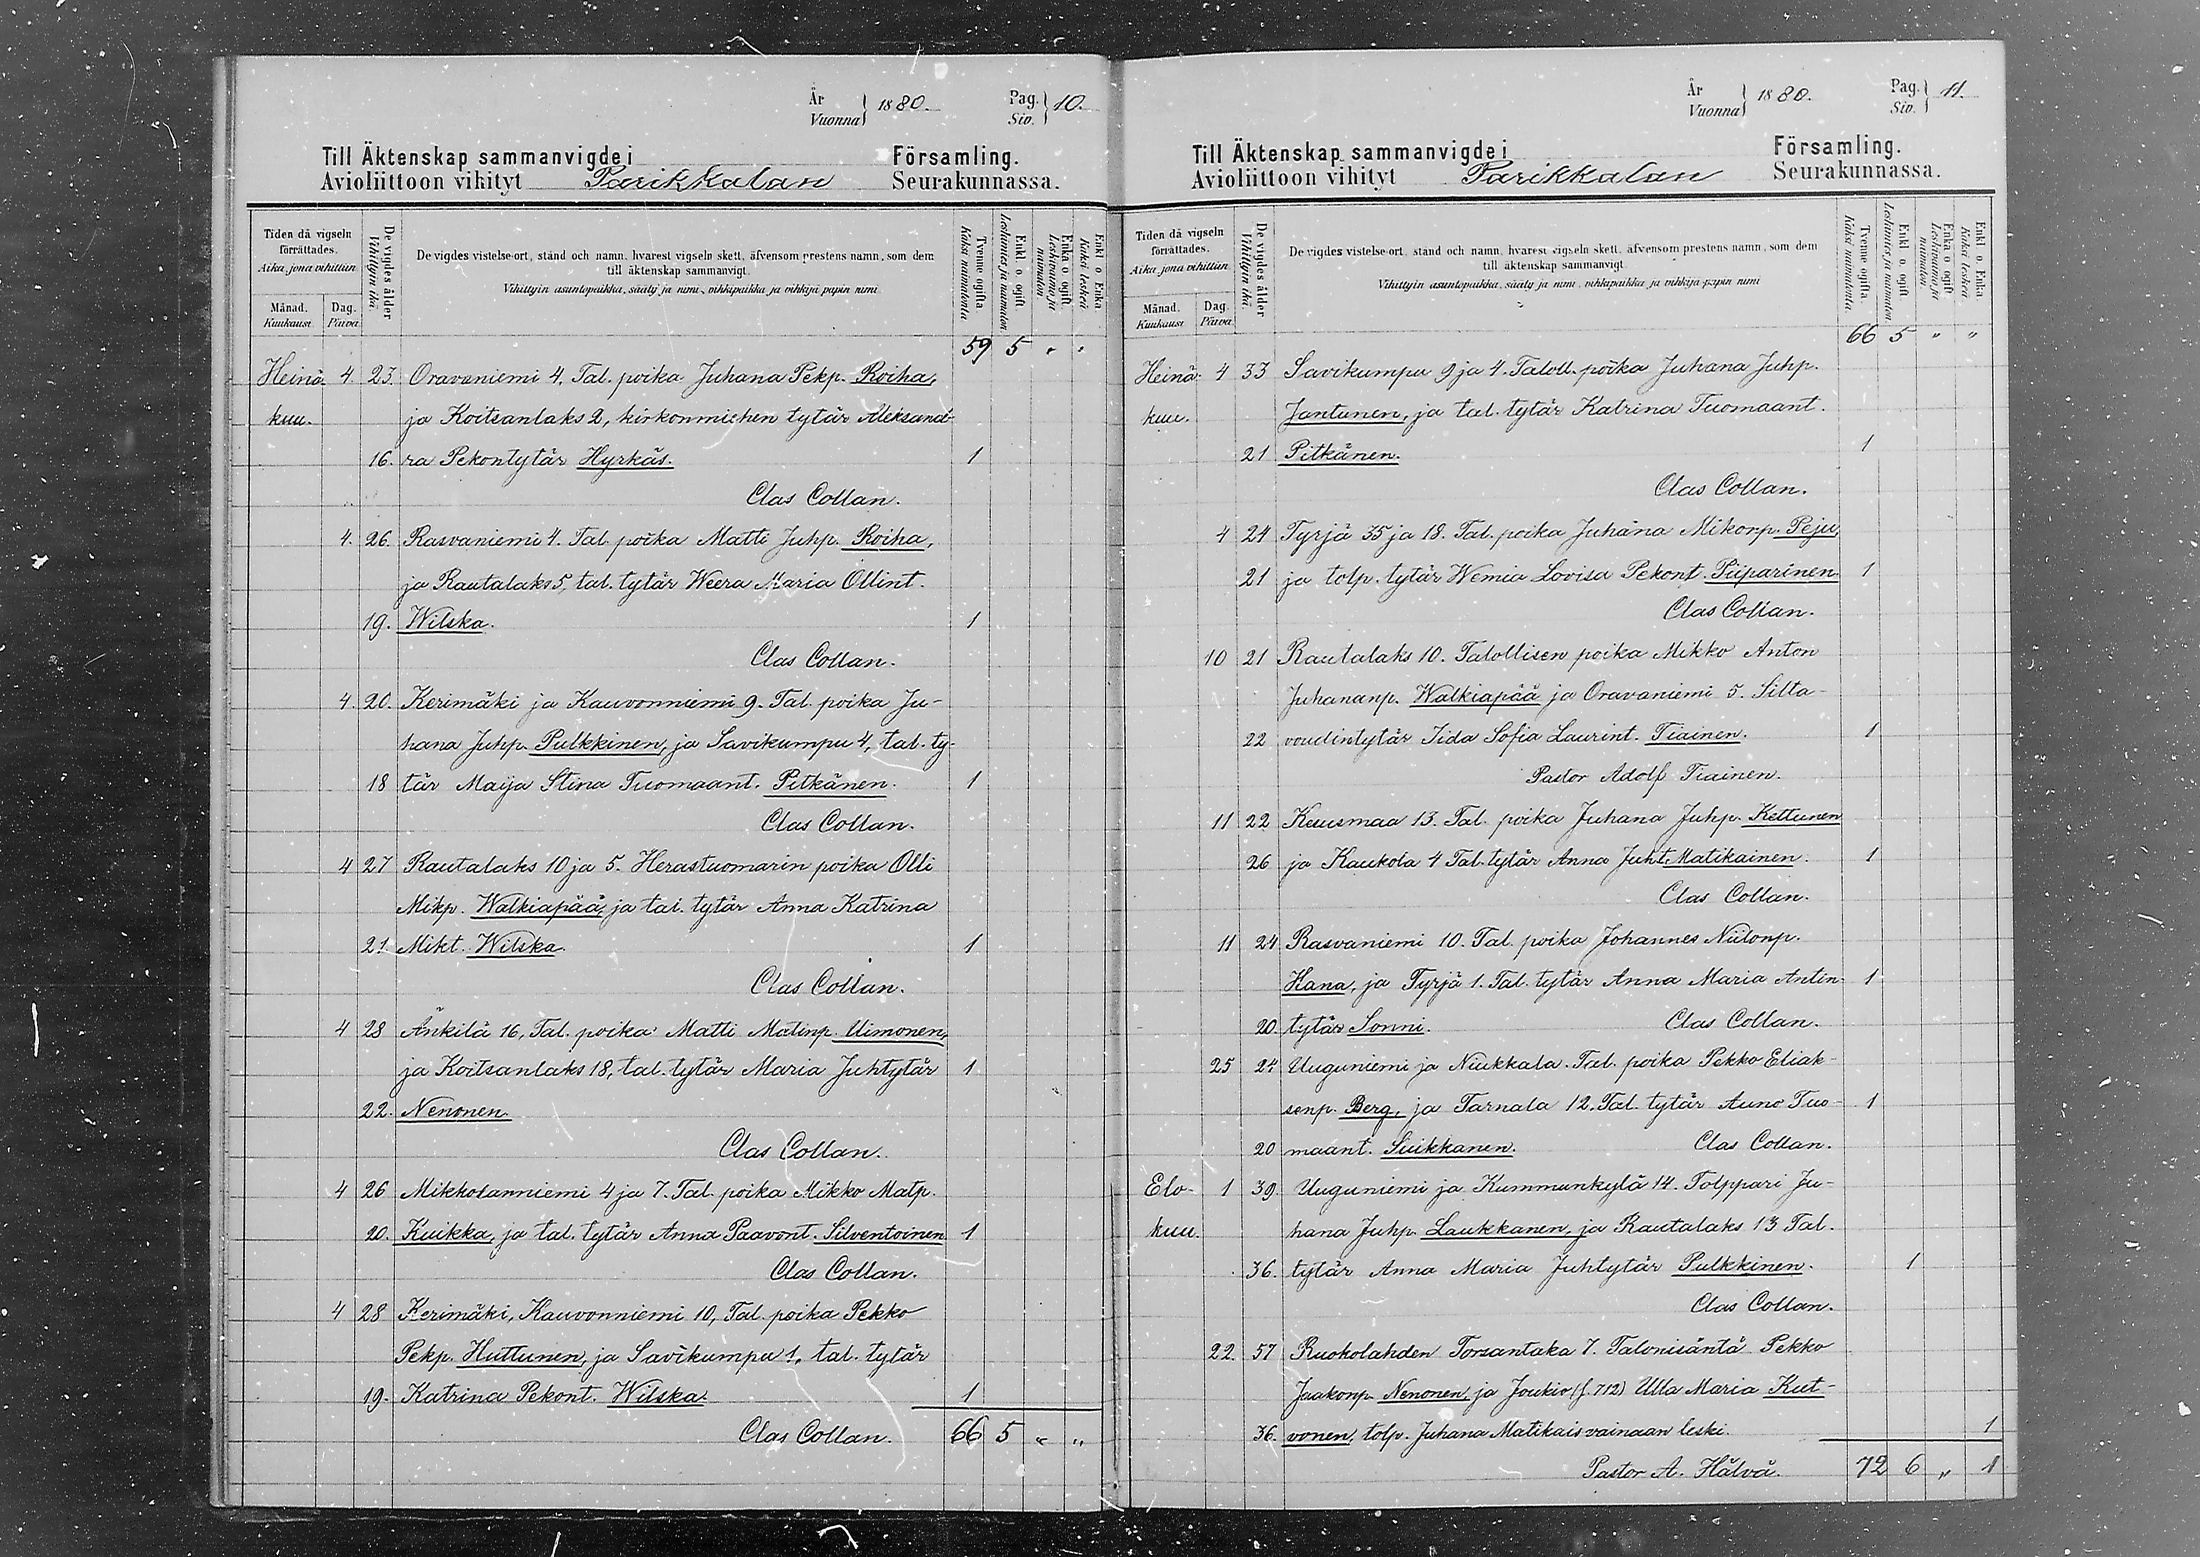 År
Vuonna } 1880.
Pag.
Siv. } 10.
Till Äktenskap sammanvigde i Församling.
Avioliittoon vihityt Parikkalan Seurakunnassa.
Tiden då vigseln förrättades.
Aika, jona vihittiin
Månad.
Kuukausi
Dag.
Päivä
De vigdes ålder
Vihittyin ikä.
De vigdes vistelse-ort, stånd och namn, hvarest vigseln skett, äfvensom prestens namn, som dem
till äktenskap sammanvigt.
Vihittyin asuntopaikka, sääty ja nimi, vihkipaikka ja vihkijä papin nimi
Tvenne ogifta
Kaksi naimatonta
Enkl. o. ogift
Leskimies ja naimaton
Enka o. ogift
Leskivaimo ja naimaton
Enkl. o. Enka
Kaksi leskeä
59 5 " "
Heinä- 4. 23. Oravaniemi 4, Tal. poika Juhana Pekp. Roiha,
kuu. ja Koitsanlaks 2, kirkonmiehen tytär Aleksand-
16. ra Pekontytär Hyrkäs. 1
Clas Collan.
4. 26. Rasvaniemi 4. Tal. poika Matti Juhp. Roiha,
ja Rautalaks 5, tal. tytär Weera Maria Ollint.
19. Wilska. 1
Clas Collan.
4. 20. Kerimäki ja Kauvonniemi 9. Tal. poika Ju-
hana Juhp. Pulkkinen, ja Savikumpu 4, tal. ty-
18 tär Maija Stina Tuomaant. Pitkänen. 1
Clas Collan.
4 27 Rautalaks 10 ja 5. Herastuomarin poika Olli
Mikp. Walkiapää, ja tal. tytär Anna Katrina
21. Mikt. Wilska. 1
Clas Collan.
4 28 Änkilä 16, Tal. poika Matti Matinp. Uimonen,
ja Koitsanlaks 18, tal. tytär Maria Juhtytär 1
22. Nenonen.
Clas Collan.
4 26 Mikkolanniemi 4 ja 7. Tal. poika Mikko Matp.
20. Kuikka, ja tal. tytär Anna Paavont. Silventoinen 1
Clas Collan.
4 28 Kerimäki, Kauvonniemi 10, Tal. poika Pekko
Pekp. Huttunen, ja Savikumpu 1, tal. tytär
19. Katrina Pekont. Wilska. 1
Clas Collan. 66 5 " "
År
Vuonna } 1880.
Pag.
Siv. } 11.
Till Äktenskap sammanvigde i Församling.
Avioliittoon vihityt Parikkalan Seurakunnassa.
Tiden då vigseln förrättades.
Aika, jona vihittiin
Månad.
Kuukausi
Dag.
Päivä
De vigdes ålder
Vihittyin ikä.
De vigdes vistelse-ort, stånd och namn, hvarest vigseln skett, äfvensom prestens namn, som dem
till äktenskap sammanvigt.
Vihittyin asuntopaikka, sääty ja nimi, vihkipaikka ja vihkijä papin nimi
Tvenne ogifta.
Kaksi naimatonta
Enkl. o. ogift
Leskimies ja naimaton
Enka o. ogift
Leskivaimo ja naimaton
Enkl. o. Enka
Kaksi leskeä
66 5 " "
Heinä- 4 33 Savikumpu 9 ja 4. Taloll. poika Juhana Juhp.
kuu. Jantunen, ja tal. tytär Katrina Tuomaant.
21 Pitkänen. 1
Clas Collan.
4 24 Tyrjä 35 ja 18. Tal. poika Juhana Mikonp. Peju,
21 ja tolp. tytär Wemia Lovisa Pekont. Piiparinen. 1
Clas Collan.
10 21 Rautalaks 10. Talollisen poika Mikko Anton
Juhananp. Walkiapää ja Oravaniemi 5. Silta-
22 voudintytär Iida Sofia Laurint. Tiainen. 1
Pastor Adolf Tiainen.
11 22 Kesusmaa 13. Tal. poika Juhana Juhp. Kettunen
26 ja Kaukola 4 Tal. tytär Anna Juht. Matikainen. 1
Clas Collan.
11 24 Rasvaniemi 10. Tal. poika Johannes Niilonp.
Hana, ja Tyrjä 1. Tal. tytär Anna Maria Antin- 1
20. tytär Sonni. Clas Collan.
25 24 Uuguniemi ja Niukkala. Tal. poika Pekko Eliak-
senp. Berg, ja Tarnala 12. Tal. tytär Auno Tuo- 1
20 maant. Siukkanen. Clas Collan.
Elo- 1 39. Uuguniemi ja Kummunkylä 14. Tolppari Ju-
kuu. hana Juhp. Laukkanen, ja Rautalaks 13 Tal.
36. tytär Anna Maria Juhtytär Pulkkinen. 1
Clas Collan.
22. 57 Ruokolahden Torsantaka 7. Talonisäntä Pekko
Jaakonp. Nenonen, ja Joukio (f. 712) Ulla Maria Kut-
36. vonen, tolp. Juhana Matikais vainaan leski. 1
Pastor A. Hälvä. 72 6 " 1